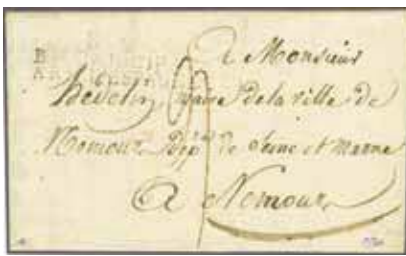 A Monsieur
hedelin, maire de la ville de
Nemour Dépt de Seine et Marne
A Nemour